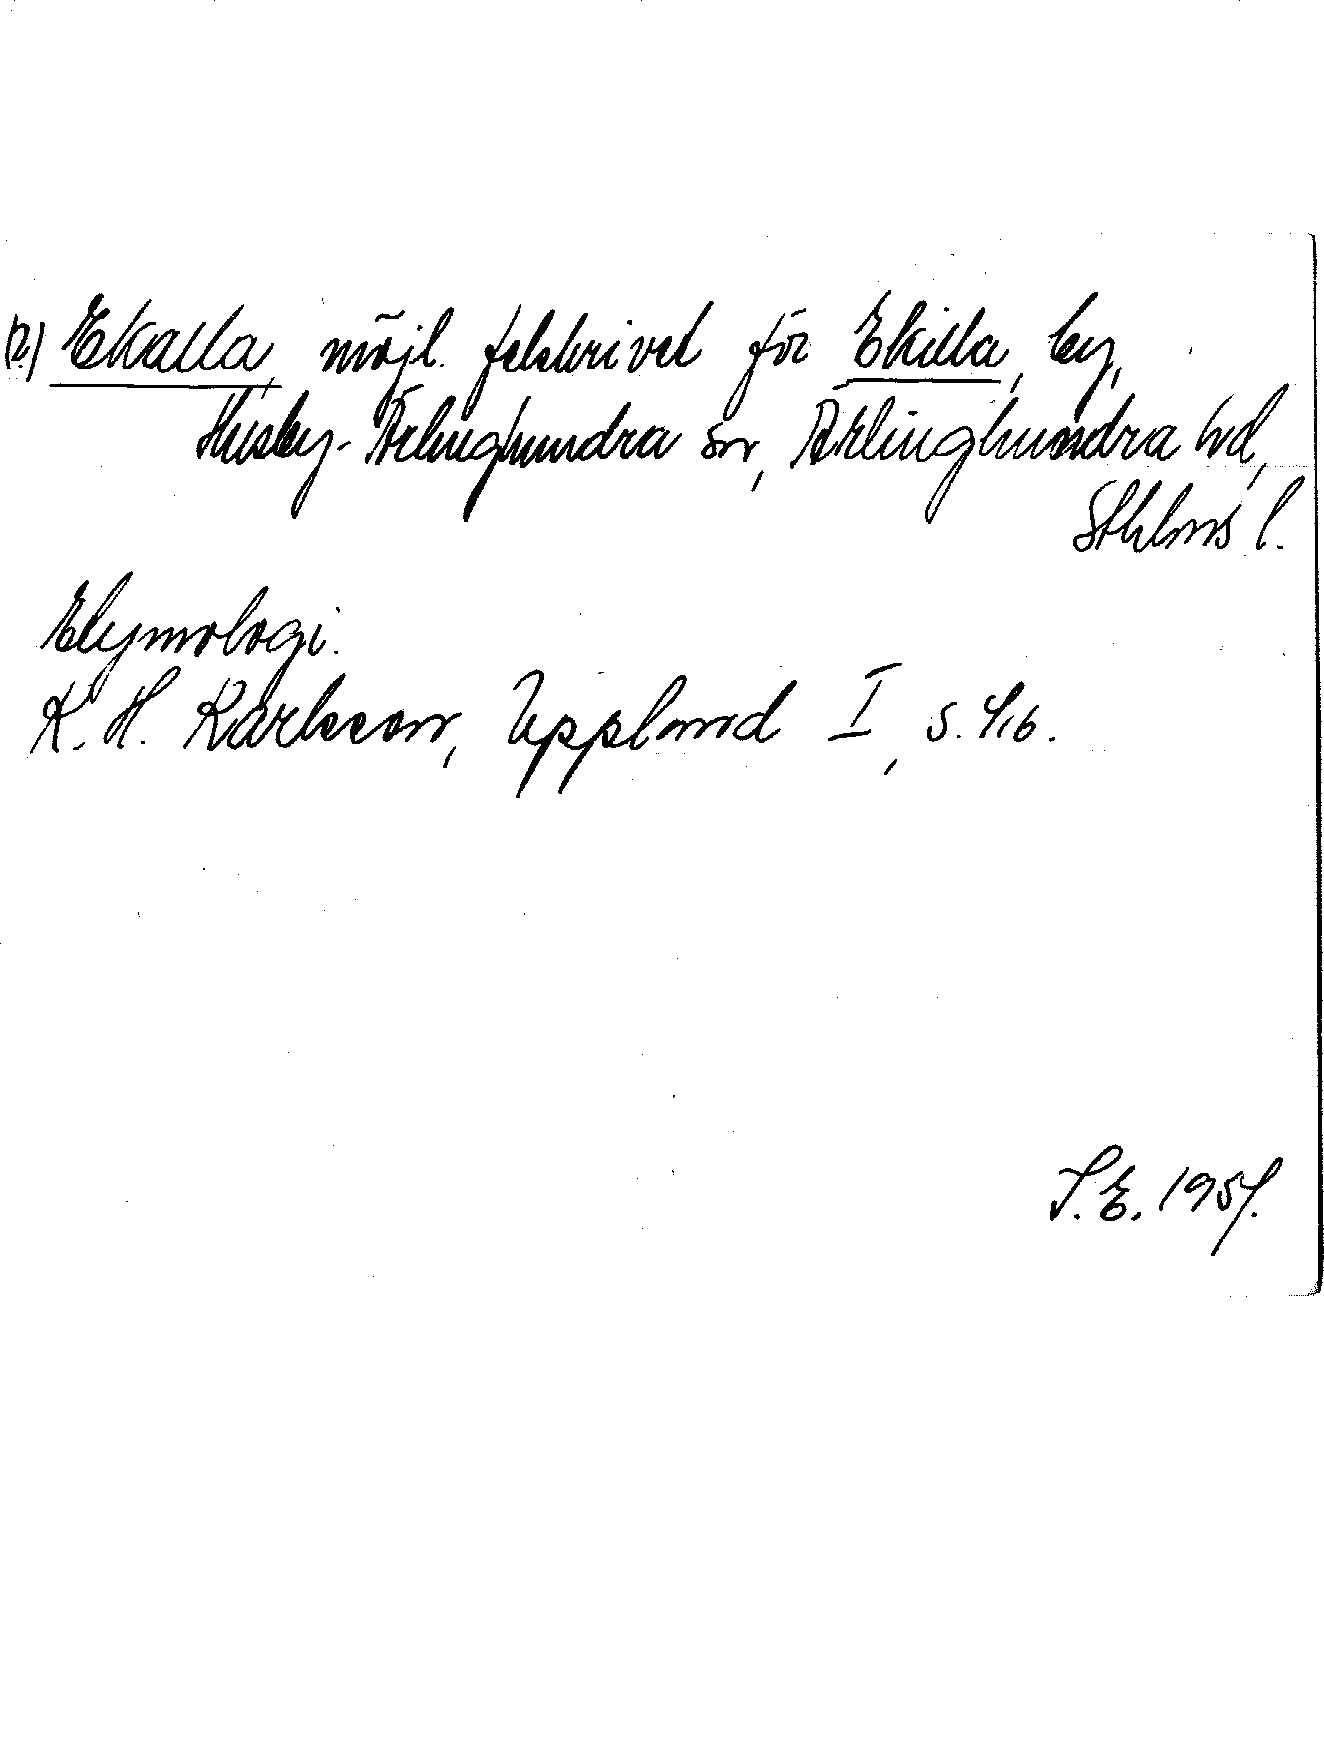 (?) Ekalla, möjl. felskrivet för Ekilla, by,
Husby-Ärlinghundra sn, Ärlinghundra hd,
Sthlms l.
Etymologi.
K. H. Karlsson, Uppland I, s. 416.
S. E. 1957.